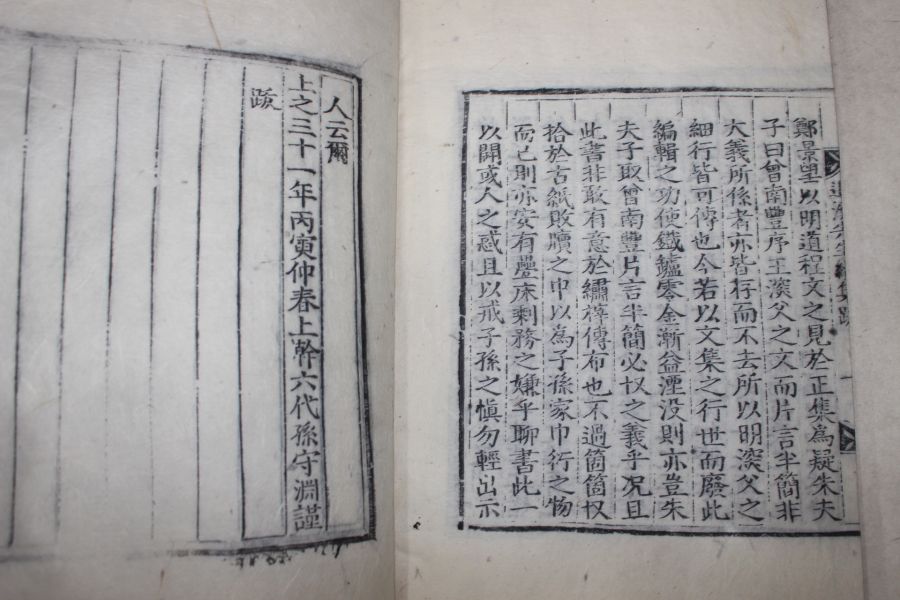 鄭景望以明道程文之見於正集爲疑朱夫
子曰曾南豐序王深父之文而片言半簡非
大義所係者亦皆存而不去所以明深父之
細行皆可傳也今若以文集之行世而廢此
編輯之功使鐵鑪零金漸益湮没則亦豈朱
夫子取曾南豐片言半簡必收之義乎况且
此書非敢有意於繡梓傳布也不過箇箇収
拾於古紙敗牘之中以為子孫家巾衍之物
而已則亦安有疊床剩務之嫌乎聊書此一
以開或人之惑且以戒子孫之愼勿輕出示
人云爾
上之三十一年丙寅仲春上幹六代孫守淵謹
跋